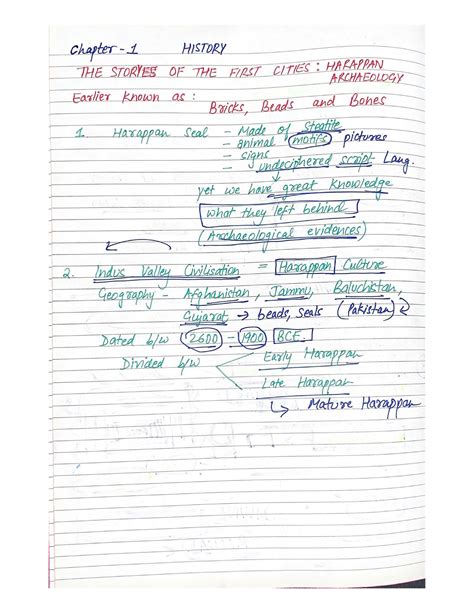 Chapter - 1 HISTORY
THE STORYES OF THE FIRST CITIES : HARAPPAN
ARCHAEOLOGY
Earlier Known as : Bricks, Beads and Bones
1. Harappan Seal - Made of Steatile
- animal motifs pictures
- signs
- undeciphered script Lang.
yet we have great Knowledge
what they left behind
(Archaeological evidences)
2. Indus Valley Civilisation = Harappan Culture
Geography - Afghanistan, Jammu, Baluchistan,
Gujarat → beads, seals (Pakistan)
Dated b/w 2600 - 1900 BCE.
Divided b/w Early Harappan
Late Harappan
↳ Mature Harappan